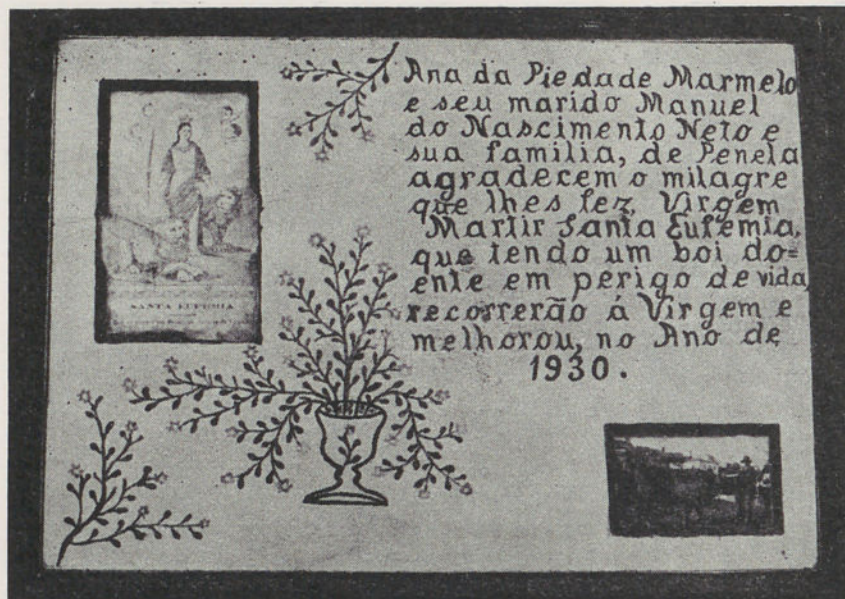 SANTA EUFEMIA
Ana da Piedade Marmelo
e seu marido Manuel
do Nascimento Neto e
sua familia, de Penela
agradecem o milagre
que lhes fez, Virgem
Martir Santa Eufemia,
que tendo um boi do=
ente em perigo de vida,
recorrerão á Virgem e
melhorou, no Ano de
1930.